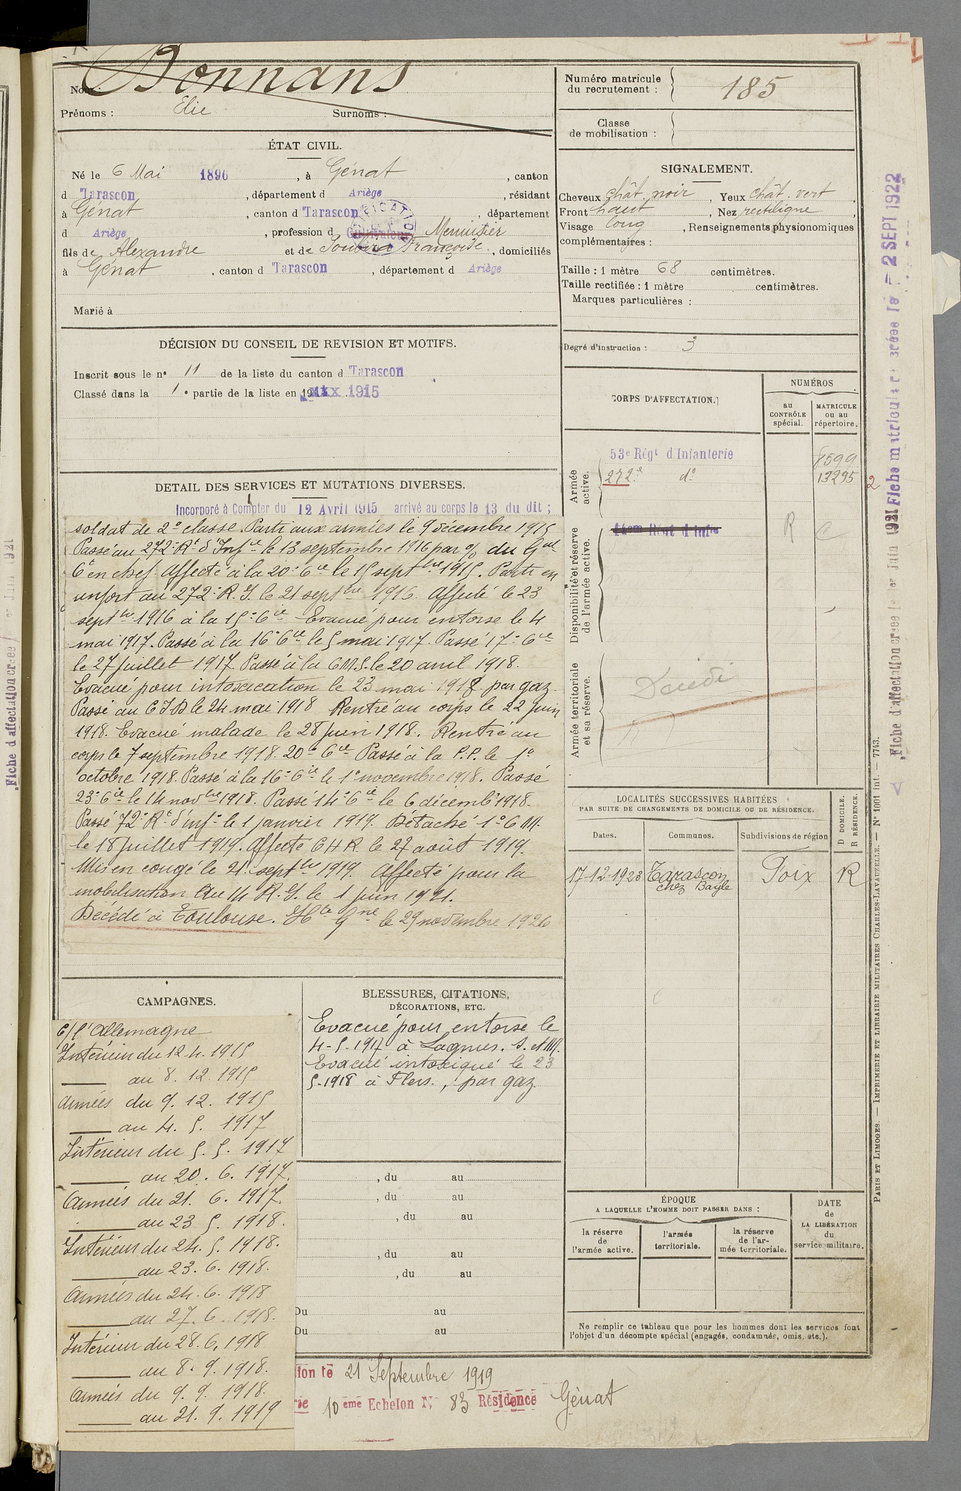 Nom: Bonnans
Prénoms : Elie Surnoms :
ÉTAT CIVIL.
Né le 6 Mai 1896, à Génat, canton
d Tarascon, département d Ariège, résidant
à Génat, canton d Tarascon, département
d Ariège, profession d Menuisier
fils de Alexandre et de Françoise, domiciliés
à Génat, canton d Tarascon, département d Ariège
Marié à
DÉCISION DU CONSEIL DE REVISION ET MOTIFS.
Inscrit sous le n° 11 de la liste du canton d Tarascon
Classé dans la 1e partie de la liste en 1915
DÉTAIL DES SERVICES ET MUTATIONS DIVERSES.
Incorporé à Compter du 12 Avril 1915 arrivé au corps le 13 du dit ;
soldat de 2e classe. Parti aux armées le 9 décembre 1915
Passé au 272e Rt d'Infie le 13 septembre 1916 par % du Gal
Ct en chef. Affecté à la 20e Cie le 15 septbre 1915. Parti en
renfort au 272e R.I. le 21 septbre 1916. Affecté le 23
septbre 1916 à la 15e Cie. Evacué pour entorse le 4
mai 1917. Passé à la 16e Cie le 5 mai 1917. Passé 17e Cie
le 27 juillet 1917. Passé à la C.M.5 le 20 avril 1918.
Evacué pour intoxication le 23 mai 1918 par gaz
Passé au C.I.D le 24 mai 1918. Rentré au corps le 22 juin
1918. Evacué malade le 28 juin 1918. Rentré au
corps le 7 septembre 1918. 20e Cie Passé à la P.P. le 1e
octobre 1918. Passé à la 16e Cie le 1e novembre 1918. Passé
23e Cie le 14 novbre 1918. Passé 14e Cie le 6 décembre 1918.
Passé 72e Rt d'Infie le 1 janvier 1919. Détaché 1e C.M.
le 18 juillet 1919. Affecté C H R le 27 août 1919.
Mis en congé le 21 septbre 1919. Affecté pour la
mobilisation au 14 R.I. le 1 juin 1921.
Décédé à Toulouse. Hte Gne le 29 novembre 1926
CAMPAGNES.
C/ l'Allemagne
Intérieur du 12.4.1915
au 8.12.1915
Armées du 9.12.1915
au 4.5.1917
Intérieur du 5.5.1917
au 20.6.1917.
Armées du 21.6.1917.
au 23.5.1918.
Intérieur du 24.5.1918.
au 23.6.1918.
Armées du 24.6.1918
au 27.6.1918.
Intérieur du 28.6.1918
au 8.9.1918.
Armées du 9.9.1918.
au 21.9.1919
BLESSURES, CITATIONS,
DÉCORATIONS, ETC.
Evacué pour entorse le
4-5-1917 à Lagnus. S. et M.
Evacué intoxiqué le 23
5-1918 à Flers, par gaz
, du au
, du au
, du au
, du au
, du au
Du au
Du au
ion le 21 Septembre 1919
10eme Echelon N° 83 Résidence Génat
Numéro matricule
du recrutement : 185
Classe
de mobilisation :
SIGNALEMENT.
Cheveux chât. noir, Yeux chât. vert
Front haut, Nez rectiligne
Visage long, Renseignements physionomiques
complémentaires :
Taille : 1 mètre 68 centimètres.
Taille rectifiée : 1 mètre centimètres.
Marques particulières :
Degré d'instruction : 3
CORPS D'AFFECTATION.
NUMÉROS
AU CONTRÔLE spécial.
MATRICULE ou au répertoire.
Armée active.
53e Régt d'Infanterie 7599
272e do 13295
2
Disponibilité et réserve de l'armée active.
R C
Armée territoriale et sa réserve.
Décédé
LOCALITÉS SUCCESSIVES HABITÉES
PAR SUITE DE CHANGEMENTS DE DOMICILE OU DE RÉSIDENCE.
Dates. Communes. Subdivisions de région
D DOMICILE.
R RÉSIDENCE.
17-12-1923 Tarascon Foix R
chez Bayle
ÉPOQUE
A LAQUELLE L'HOMME DOIT PASSER DANS :
la réserve de l'armée active.
l'armée territoriale.
la réserve de l'armée territoriale.
DATE de LA LIBÉRATION du service militaire.
Ne remplir ce tableau que pour les hommes dont les services font
l'objet d'un décompte spécial (engagés, condamnés, omis, etc.).
PARIS ET LIMOGES. — IMPRIMERIE ET LIBRAIRIE MILITAIRES CHARLES-LAVAUZELLE. — N° 1001 int. — 7743.
Fiche matriculaire créée le 2 SEPT 1922
Fiche d'affectation créée le 1er Juin 1921
Fiche d'affectation créée